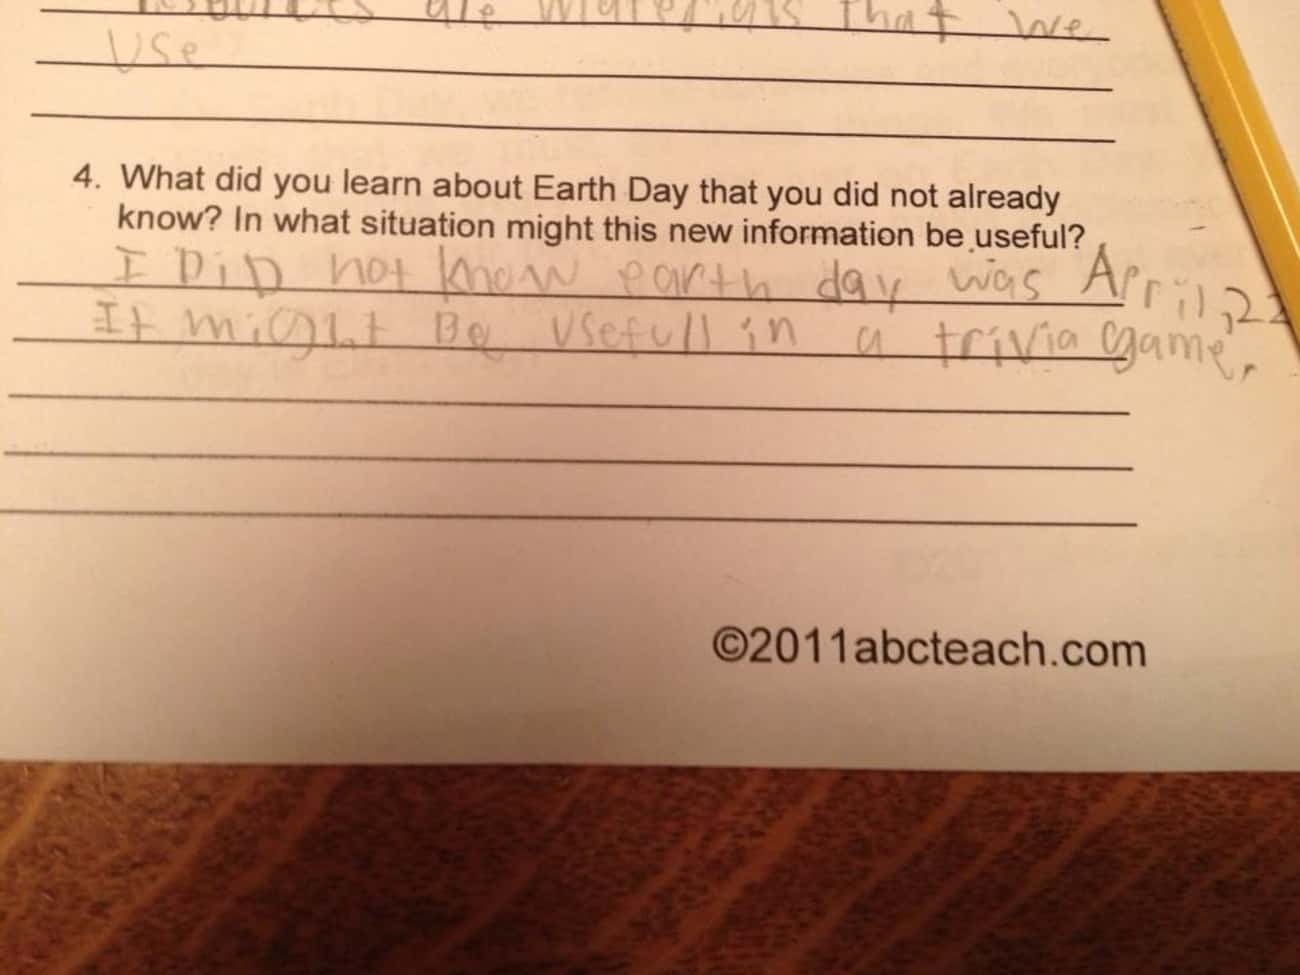 resources are materials that we
use
4. What did you learn about Earth Day that you did not already
know? In what situation might this new information be useful?
I DiD not know earth day was April, 22
It might Be usefull in a trivia game.
©2011abcteach.com